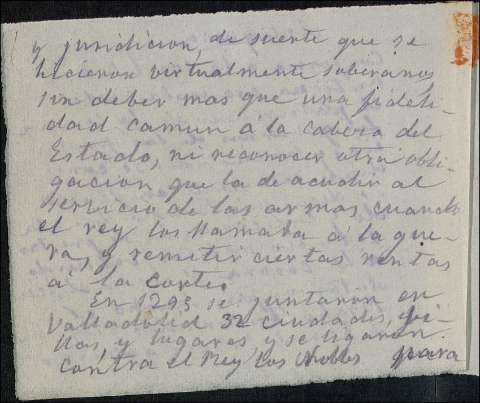 y juridicion, de suerte que se
hicieron virtualmente soberanos,
sin deber mas que una fideli-
dad comun á la cabeza del
Estado, ni reconocer otra obli-
gacion que la de acudir al
servicio de las armas cuando
el rey los llamaba a la gue-
ra, y remitir ciertas rentas
a la Corte.
En 1295 se juntaron en
Valladolid 32 ciudades, vi-
llas, y lugares, y se ligaron
contra el Rey los Nobles para